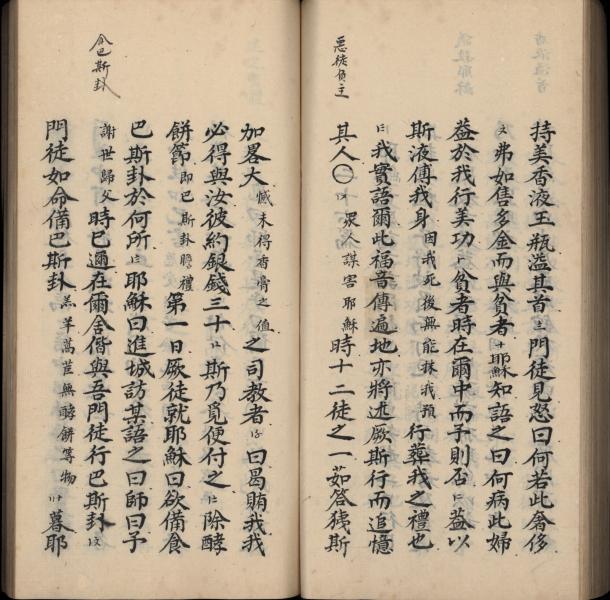 惡徒負主
持美香液玉瓶溢其首門徒見怒曰何若此奢侈
弗如售多金而與貧者耶穌知語之曰何病此婦
葢於我行美功貧者時在爾中而予則否葢以
斯液傅我身因我死後無能抹我預行葬我之禮也
我實語爾此福音傳遍地亦將述厥斯行而追憶
其人〇眾人謀害耶穌時十二徒之一茹答
斯
食巴斯卦
加畧大憾未得香膏之值之司教者曰曷賄我我
必得與汝彼約銀錢三十斯乃覓便付之除酵
餅節即巴斯卦瞻禮第一日厥徒就耶穌曰欲備食
巴斯卦於何所耶穌曰進城訪某語之曰師曰予
謝世歸父時已邇在爾舍偕與吾門徒行巴斯卦
門徒如命備巴斯卦羔羊萵苣無酵餅等物暮耶